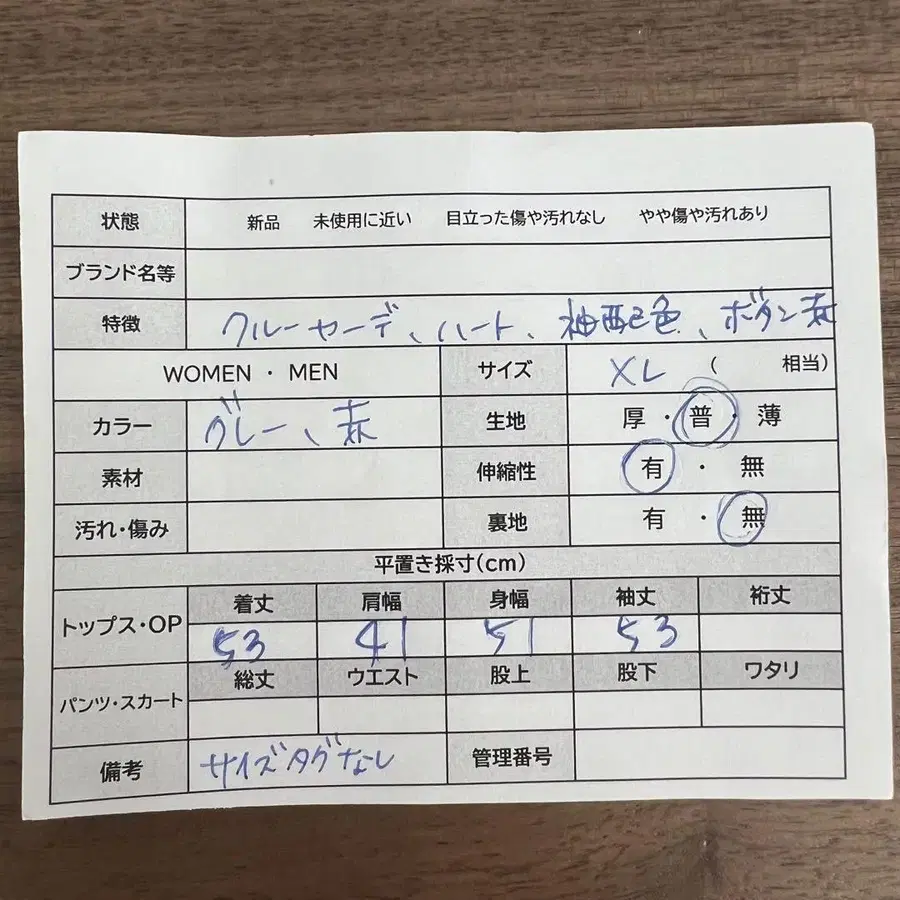 状態 新品 未使用に近い 目立った傷や汚れなし やや傷や汚れあり
ブランド名等
特徴 クルーセーデ、ハート、袖配色、ボタン赤
WOMEN ・ MEN サイズ XL ( 相当)
カラー グレー、赤 生地 厚・普・薄
素材 伸縮性 有・無
汚れ・傷み 裏地 有・無
平置き採寸(cm)
トップス・OP 着丈 肩幅 身幅 袖丈 裄丈
53 41 51 53
パンツ・スカート 総丈 ウエスト 股上 股下 ワタリ
備考 サイズタグなし 管理番号